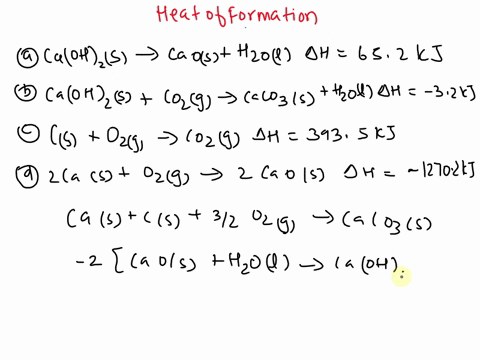 Heat of Formation
(a) Ca(OH)2(s) → CaO(s) + H2O(l) ΔH = 65.2 kJ
(b) Ca(OH)2(s) + CO2(g) → CaCO3(s) + H2O(l) ΔH = -3.2kJ
(c) C(s) + O2(g) → CO2(g) ΔH = 393.5 kJ
(d) 2Ca(s) + O2(g) → 2CaO(s) ΔH = -1270.2kJ
Ca(s) + C(s) + 3/2 O2(g) → CaCO3(s)
-2 [CaO(s) + H2O(l) → Ca(OH)